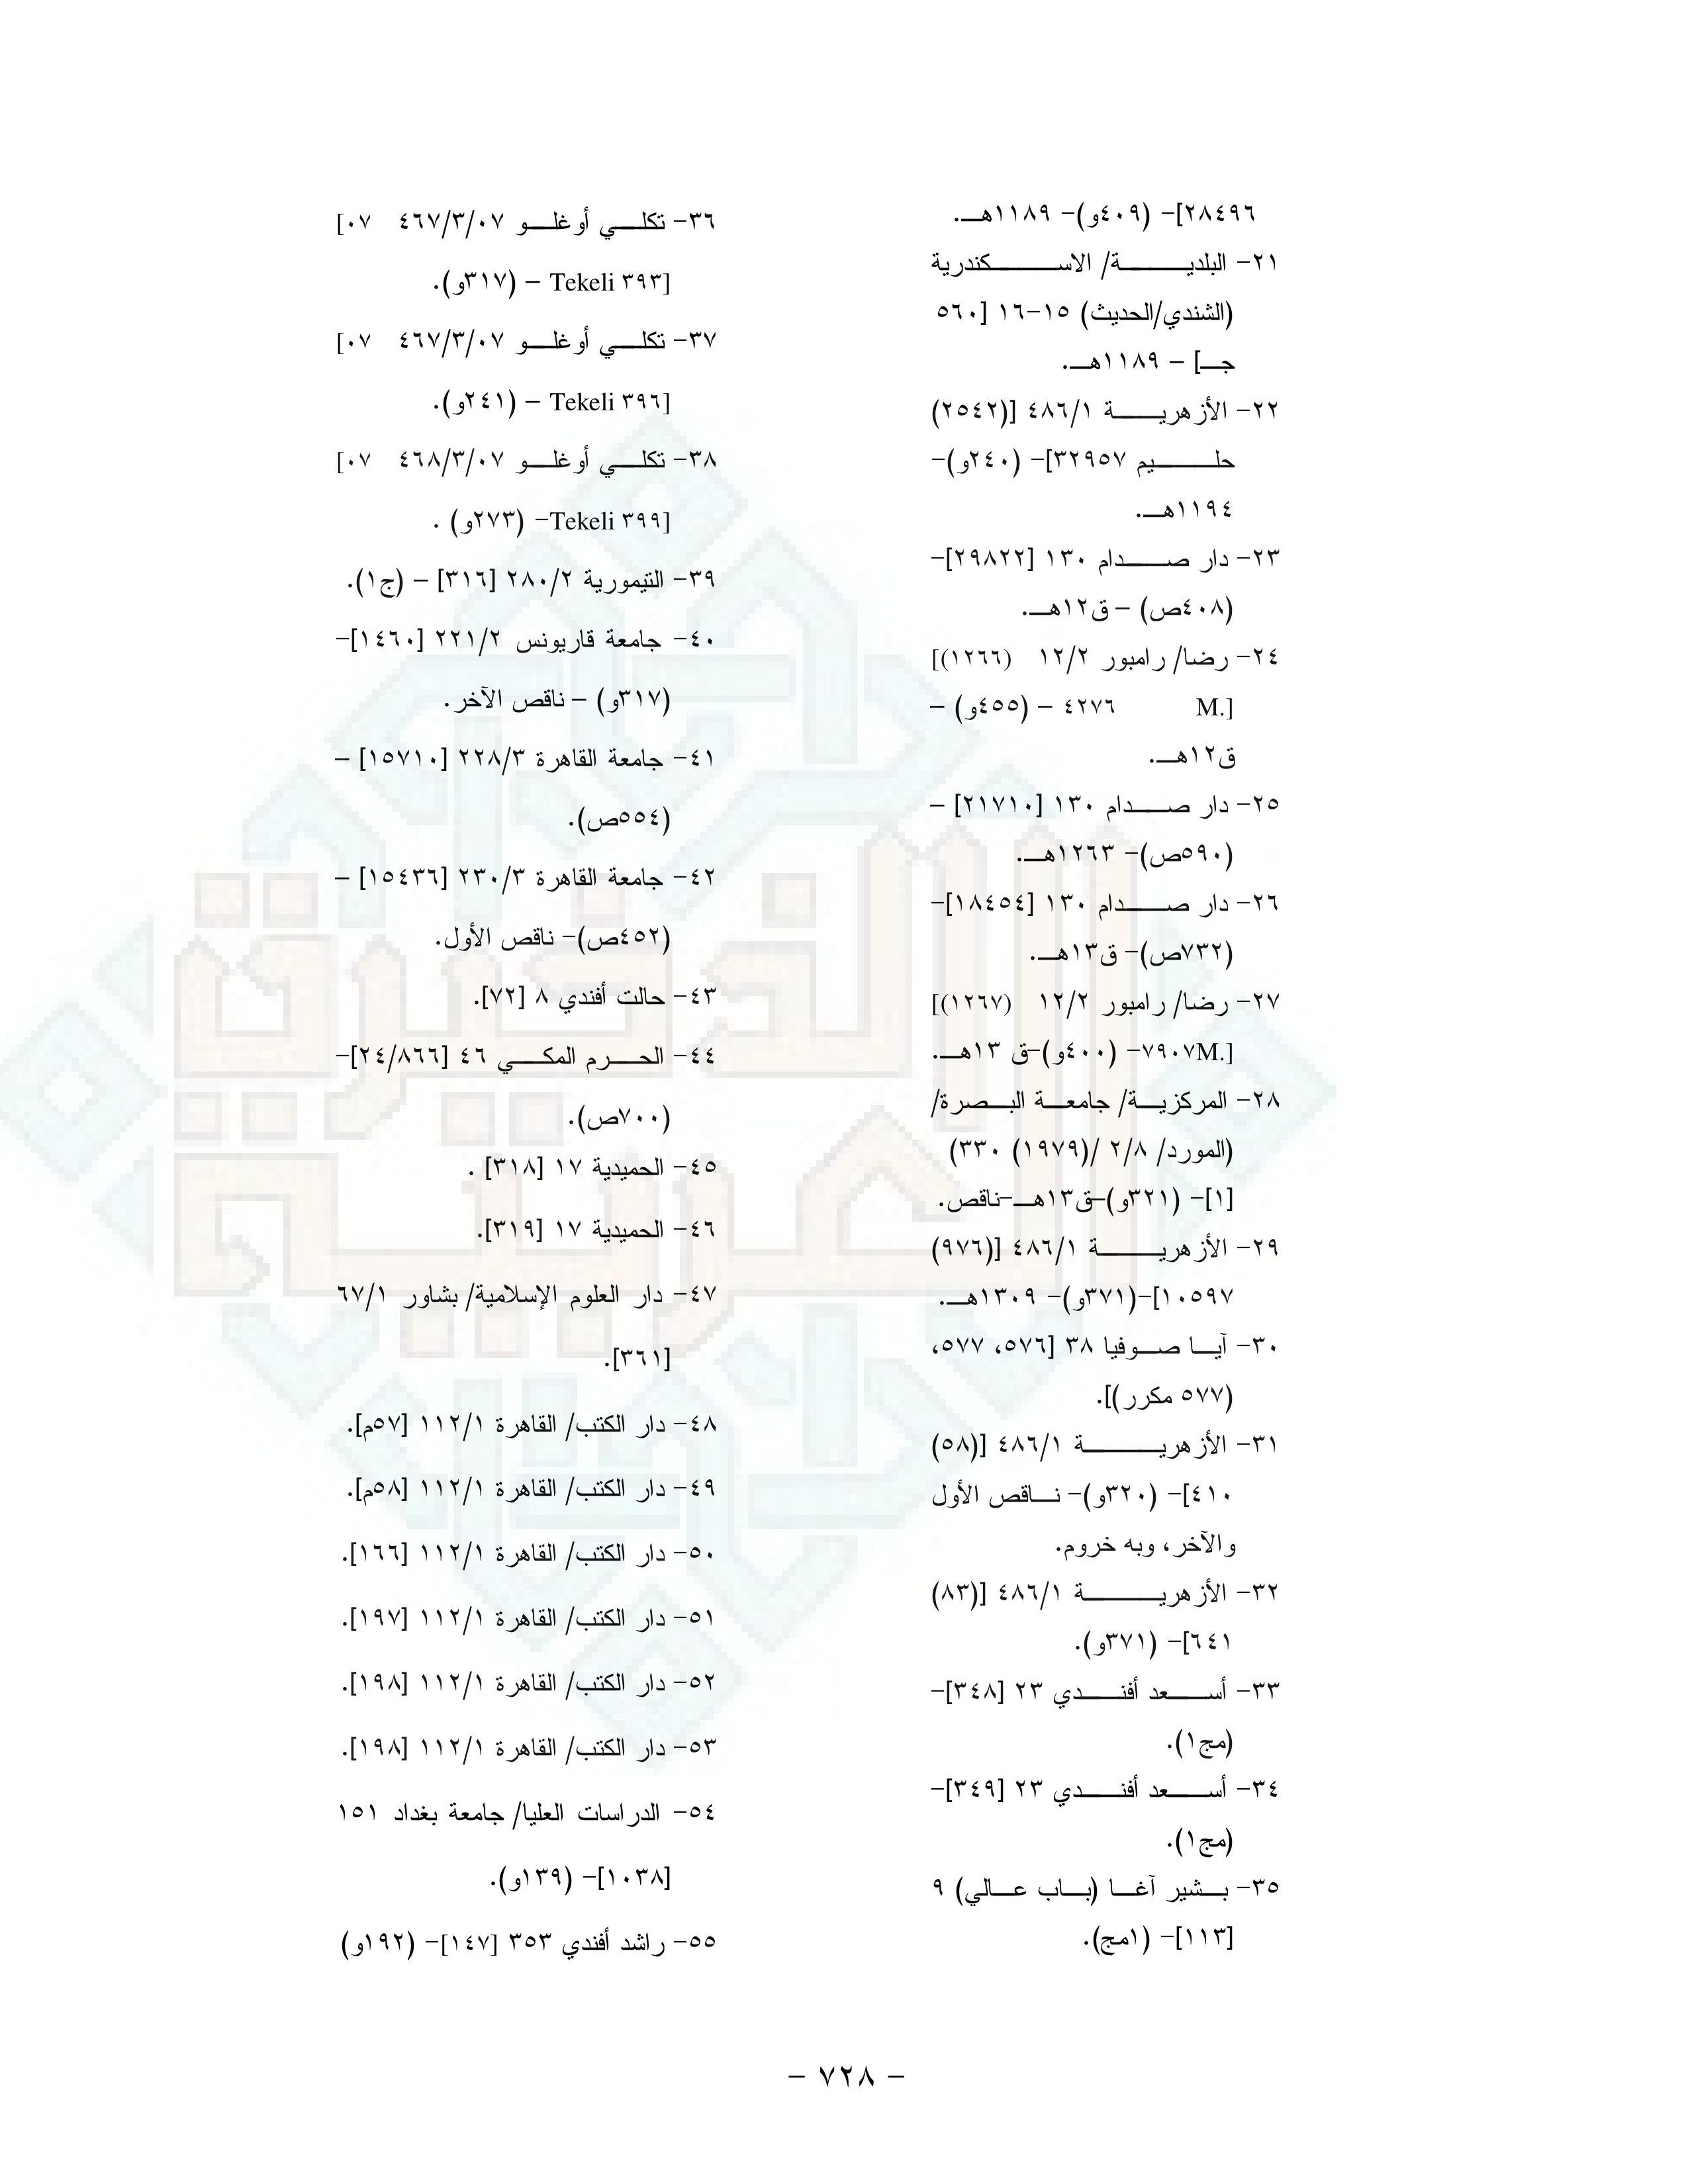 ٢٨٤٩٦]– (٤٠٩و)– ١١٨٩هـ.
٢١– البلدية/ الاسكندرية
(الشندي/الحديث) ١٥–١٦ [٥٦٠
جـ] – ١١٨٩هـ.
٢٢– الأزهرية ٤٨٦/١ [(٢٥٤٢)
حليم ٣٢٩٥٧]– (٢٤٠و)–
١١٩٤هـ.
٢٣– دار صدام ١٣٠ [٢٩٨٢٢]–
(٤٠٨ص) – ق١٢هـ.
٢٤– رضا/ رامبور ١٢/٢ (١٢٦٦)]
[.M ٤٢٧٦ – (٤٥٥و) –
ق١٢هـ.
٢٥– دار صدام ١٣٠ [٢١٧١٠] –
(٥٩٠ص)– ١٢٦٣هـ.
٢٦– دار صدام ١٣٠ [١٨٤٥٤]–
(٧٣٢ص)– ق١٣هـ.
٢٧– رضا/ رامبور ١٢/٢ (١٢٦٧)]
[.M٧٩٠٧– (٤٠٠و)–ق ١٣هـ.
٢٨– المركزية/ جامعة البصرة/
(المورد/ ٢/٨ /(١٩٧٩) ٣٣٠)
[١]– (٣٢١و)–ق١٣هـ–ناقص.
٢٩– الأزهرية ٤٨٦/١ [(٩٧٦)
١٠٥٩٧]–(٣٧١و)– ١٣٠٩هـ.
٣٠– آيا صوفيا ٣٨ [٥٧٦، ٥٧٧،
(٥٧٧ مكرر)].
٣١– الأزهرية ٤٨٦/١ [(٥٨)
٤١٠]– (٣٢٠و)– ناقص الأول
والآخر، وبه خروم.
٣٢– الأزهرية ٤٨٦/١ [(٨٣)
٦٤١]– (٣٧١و).
٣٣– أسعد أفندي ٢٣ [٣٤٨]–
(مج١).
٣٤– أسعد أفندي ٢٣ [٣٤٩]–
(مج١).
٣٥– بشير آغا (باب عالي) ٩
[١١٣]– (١مج).
٣٦– تكلي أوغلو ٤٦٧/٣/٠٧ ٠٧]
[٣٩٣ Tekeli – (٣١٧و).
٣٧– تكلي أوغلو ٤٦٧/٣/٠٧ ٠٧]
[٣٩٦ Tekeli – (٢٤١و).
٣٨– تكلي أوغلو ٤٦٨/٣/٠٧ ٠٧]
[٣٩٩ Tekeli– (٢٧٣و) .
٣٩– التيمورية ٢٨٠/٢ [٣١٦] – (ج١).
٤٠– جامعة قاريونس ٢٢١/٢ [١٤٦٠]–
(٣١٧و) – ناقص الآخر.
٤١– جامعة القاهرة ٢٢٨/٣ [١٥٧١٠] –
(٥٥٤ص).
٤٢– جامعة القاهرة ٢٣٠/٣ [١٥٤٣٦] –
(٤٥٢ص)– ناقص الأول.
٤٣– حالت أفندي ٨ [٧٢].
٤٤– الحرم المكي ٤٦ [٢٤/٨٦٦]–
(٧٠٠ص).
٤٥– الحميدية ١٧ [٣١٨] .
٤٦– الحميدية ١٧ [٣١٩].
٤٧– دار العلوم الإسلامية/ بشاور ٦٧/١
[٣٦١].
٤٨– دار الكتب/ القاهرة ١١٢/١ [٥٧م].
٤٩– دار الكتب/ القاهرة ١١٢/١ [٥٨م].
٥٠– دار الكتب/ القاهرة ١١٢/١ [١٦٦].
٥١– دار الكتب/ القاهرة ١١٢/١ [١٩٧].
٥٢– دار الكتب/ القاهرة ١١٢/١ [١٩٨].
٥٣– دار الكتب/ القاهرة ١١٢/١ [١٩٨].
٥٤– الدراسات العليا/ جامعة بغداد ١٥١
[١٠٣٨]– (١٣٩و).
٥٥– راشد أفندي ٣٥٣ [١٤٧]– (١٩٢و)
– ٧٢٨ –
الذخيرة
العربية